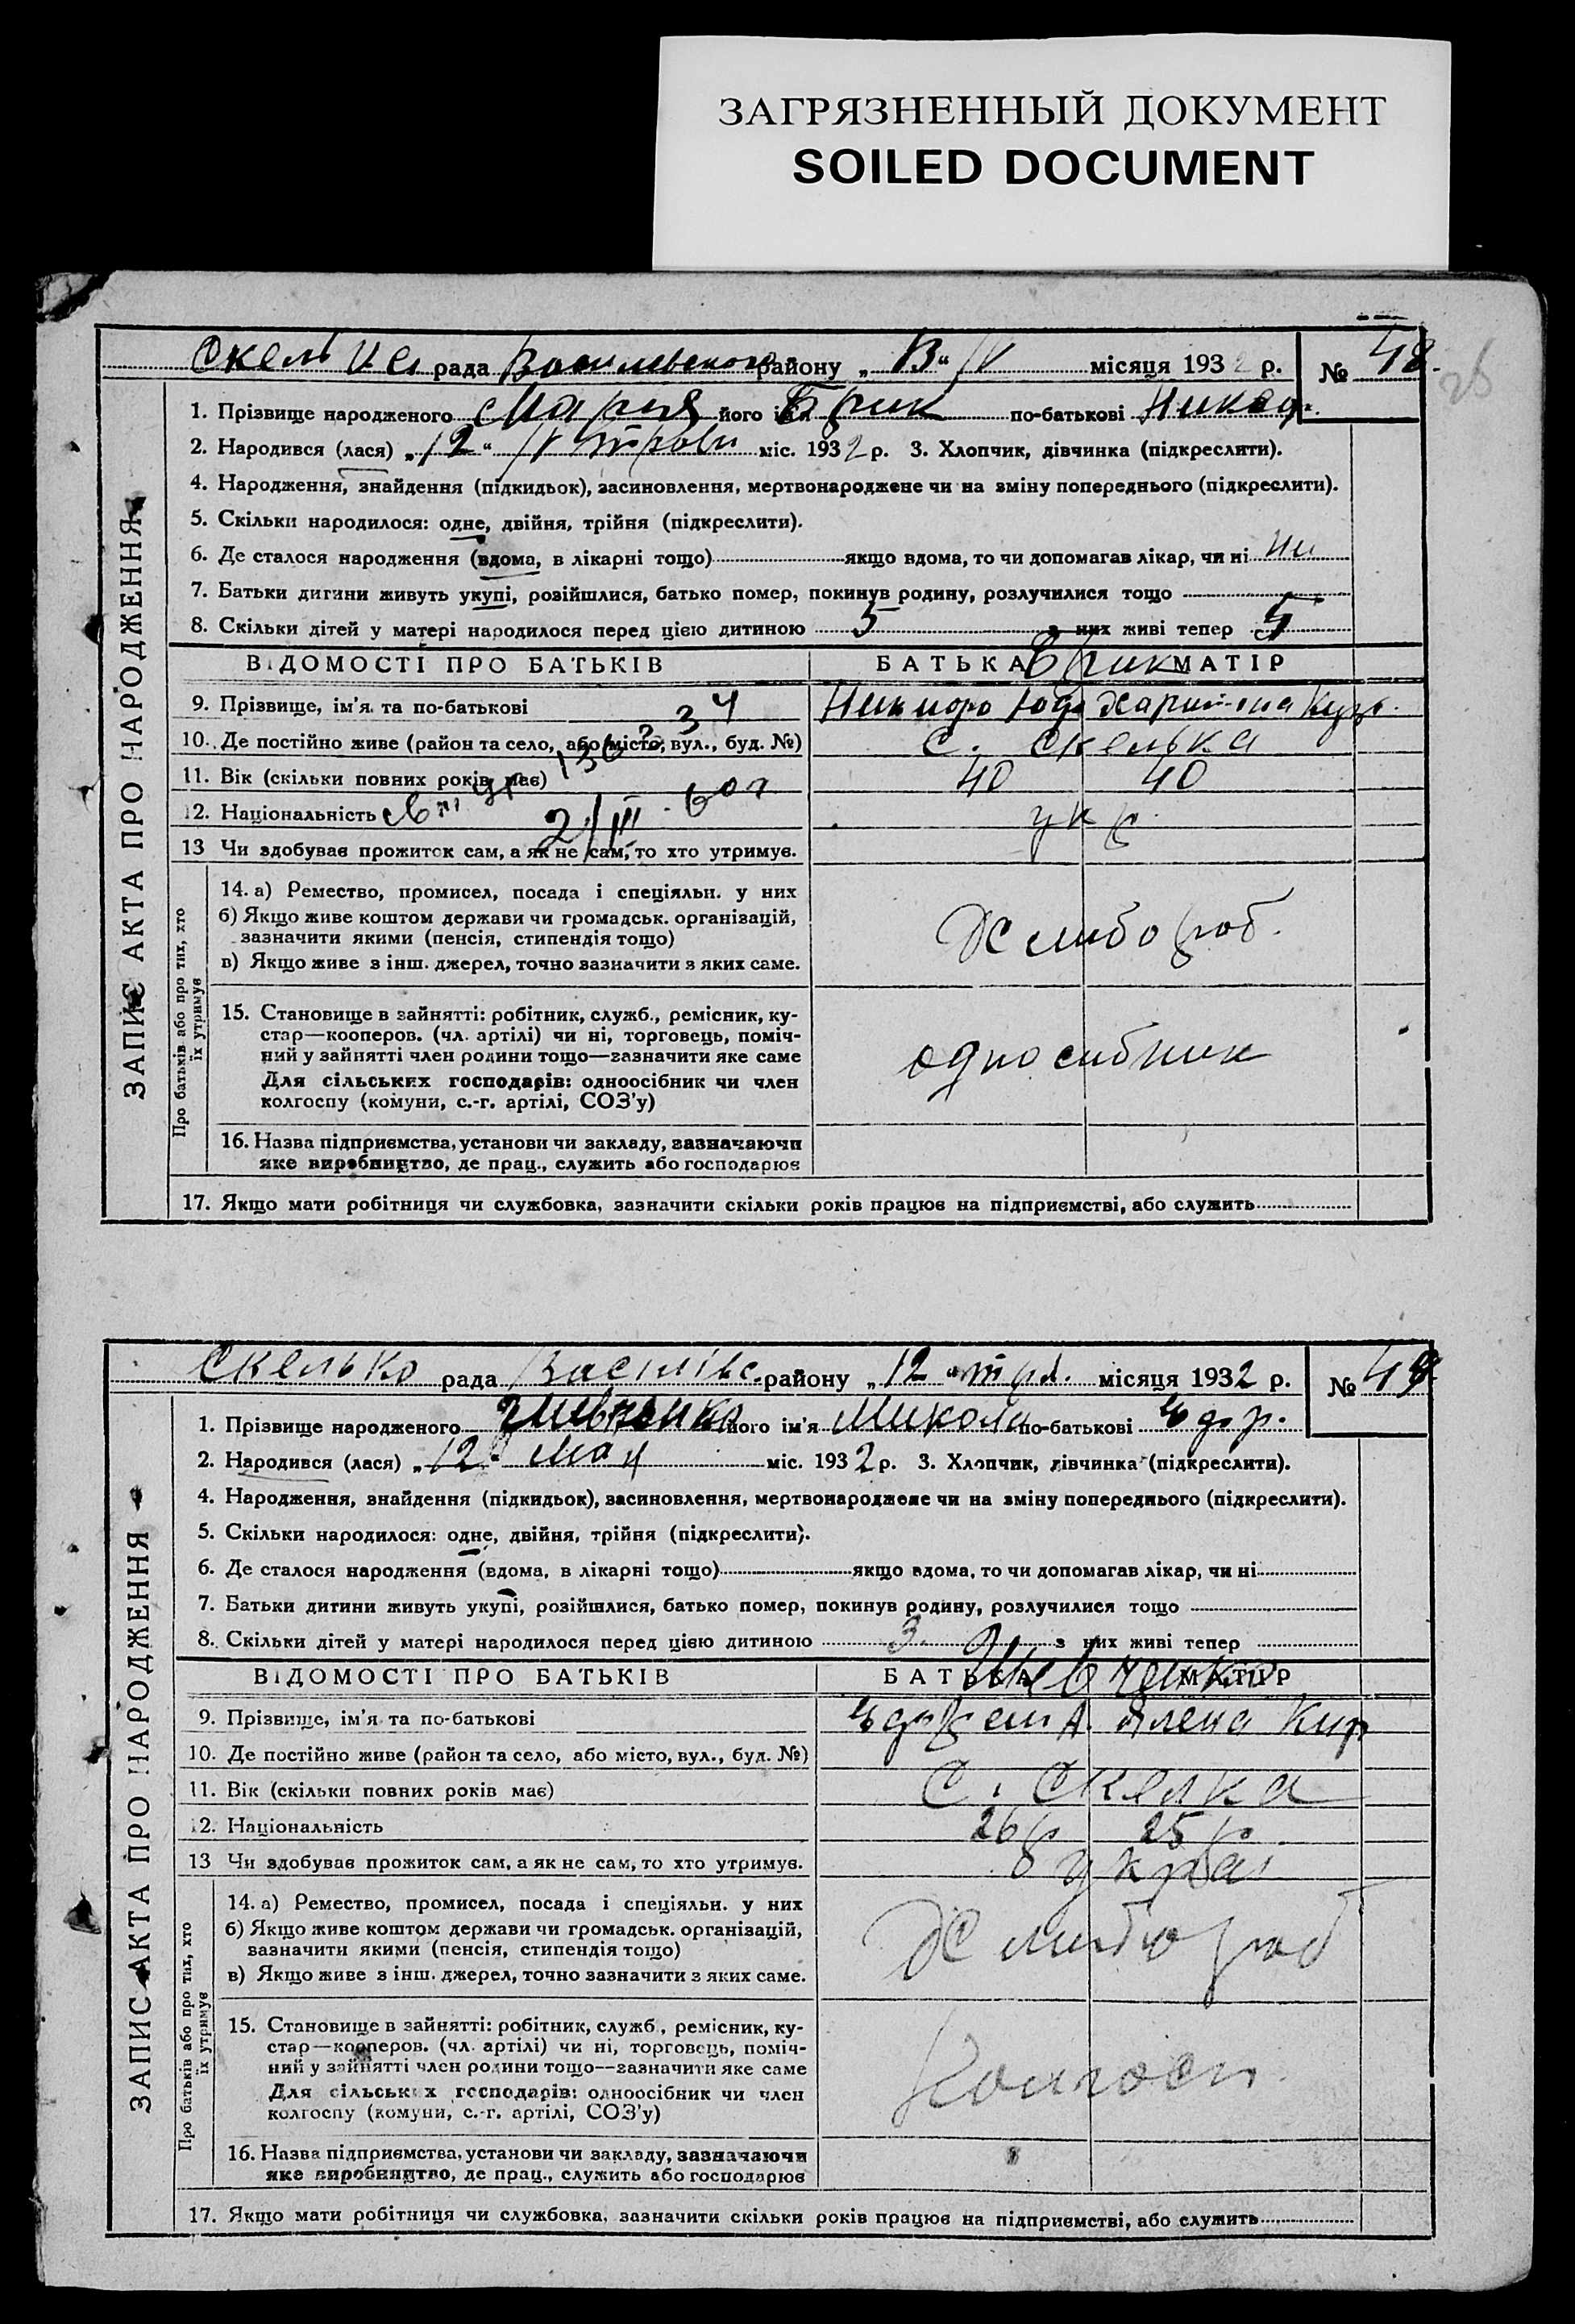 ЗАГРЯЗНЕННЫЙ ДОКУМЕНТ
SOILED DOCUMENT
рада району „ В“ IV місяця 1932 р. № 48
1. Прізвище народженого Мария його ім'я Брик по-батькові
2. Народився (лася) „12“ міс. 1932 р. 3. Хлопчик, дівчинка (підкреслити).
4. Народження, знайдення (підкидьок), засиновлення, мертвонароджене чи на зміну попереднього (підкреслити).
5. Скільки народилося: одне, двійня, трійня (підкреслити).
6. Де сталося народження (вдома, в лікарні тощо) якщо вдома, то чи допомагав лікар, чи ні ни
7. Батьки дитини живуть укупі, розійшлися, батько помер, покинув родину, розлучилися тощо
8. Скільки дітей у матері народилося перед цією дитиною 5 з них живі тепер 5
ВІДОМОСТІ ПРО БАТЬКІВ БАТЬКА Брик МАТІР
9. Прізвище, ім'я та по-батькові
10. Де постійно живе (район та село, або місто, вул., буд. №) с. Скелька
11. Вік (скільки повних років має) 40 40
12. Національність укр
21/III
13 Чи здобуває прожиток сам, а як не сам, то хто утримує.
ЗАПИС АКТА ПРО НАРОДЖЕННЯ
Про батьків або про тих, хто їх утримує
14. а) Ремество, промисел, посада і спеціяльн. у них
б) Якщо живе коштом держави чи громадськ. організацій,
зазначити якими (пенсія, стипендія тощо)
в) Якщо живе з інш. джерел, точно зазначити з яких саме.
Хлибороб.
15. Становище в зайнятті: робітник, служб., ремісник, ку-
стар—кооперов. (чл. артілі) чи ні, торговець, поміч-
ний у зайнятті член родини тощо—зазначити яке саме
Для сільських господарів: одноосібник чи член
колгоспу (комуни, с.-г. артілі, СОЗ'у)
односибник
16. Назва підприємства, установи чи закладу, зазначаючи
яке виробництво, де прац., служить або господарює
17. Якщо мати робітниця чи службовка, зазначити скільки років працює на підприємстві, або служить
Скелько рада Василівс. району „12“ трав. місяця 1932 р. № 49
1. Прізвище народженого Шевченко його ім'я Микола по-батькові
2. Народився (лася) „12“ мая міс. 1932 р. 3. Хлопчик, дівчинка (підкреслити).
4. Народження, знайдення (підкидьок), засиновлення, мертвонароджене чи на зміну попереднього (підкреслити).
5. Скільки народилося: одне, двійня, трійня (підкреслити).
6. Де сталося народження (вдома, в лікарні тощо) якщо вдома, то чи допомагав лікар, чи ні
7. Батьки дитини живуть укупі, розійшлися, батько помер, покинув родину, розлучилися тощо
8. Скільки дітей у матері народилося перед цією дитиною 3 з них живі тепер
ВІДОМОСТІ ПРО БАТЬКІВ БАТЬКА Шевченко МАТІР
9. Прізвище, ім'я та по-батькові Алена Кир
10. Де постійно живе (район та село, або місто, вул., буд. №)
11. Вік (скільки повних років має) с. Скелка
12. Національність 26 р 25 р.
13 Чи здобуває прожиток сам, а як не сам, то хто утримує. украї
ЗАПИС АКТА ПРО НАРОДЖЕННЯ
Про батьків або про тих, хто їх утримує
14. а) Ремество, промисел, посада і спеціяльн. у них
б) Якщо живе коштом держави чи громадськ. організацій,
зазначити якими (пенсія, стипендія тощо)
в) Якщо живе з інш. джерел, точно зазначити з яких саме.
Хлибороб
15. Становище в зайнятті: робітник, служб., ремісник, ку-
стар—кооперов. (чл. артілі) чи ні, торговець, поміч-
ний у зайнятті член родини тощо—зазначити яке саме
Для сільських господарів: одноосібник чи член
колгоспу (комуни, с.-г. артілі, СОЗ'у)
Колгосп
16. Назва підприємства, установи чи закладу, зазначаючи
яке виробництво, де прац., служить або господарює
17. Якщо мати робітниця чи службовка, зазначити скільки років працює на підприємстві, або служить